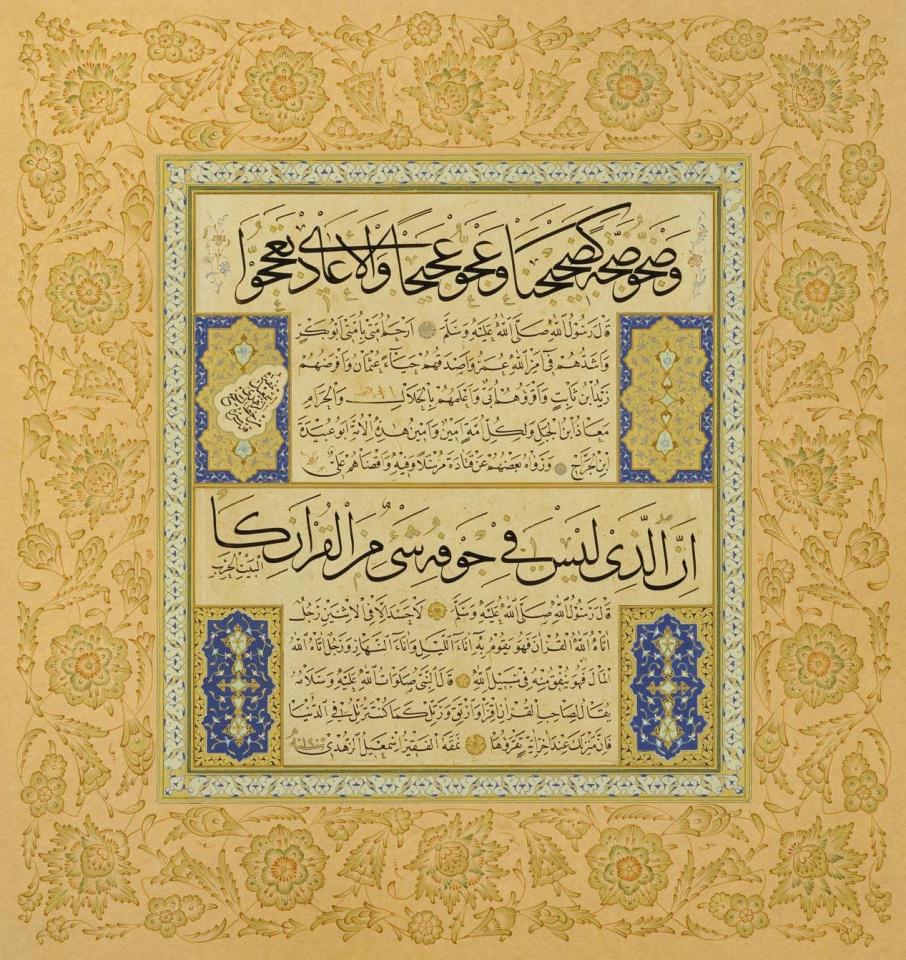 قال رسول الله صلى الله عليه وسلم ارحم أمتي بأمتي أبو بكر
وأشدهم في أمر الله عمر وأصدقهم حياء عثمان وأفرضهم
زيد ابن ثابت وأقرؤهم أبي وأعلمهم بالحلال والحرام
معاذ ابن الجبل ولكل أمة أمين وأمين هذه الأمة أبو عبيدة
ابن الجراح ورواه بعضهم عن قتادة مرسلا وفيه وأقضاهم علي
إن الذي ليس في جوفه شيء من القرآن كا
البيت الخرب
قال رسول الله صلى الله عليه وسلم لا حسد إلا في الاثنين رجل
آتاه الله القرآن فهو يقوم به آناء الليل وآناء النهار ورجل آتاه الله
المال فهو ينفق منه في سبيل الله قال النبي صلوات الله عليه وسلامه
يقال لصاحب القرآن اقرأ وارتق ورتل كما كنت ترتل في الدنيا
فإن منزلك عند آخر آية تقرؤها نمقه الفقير اسمعيل الزهدي